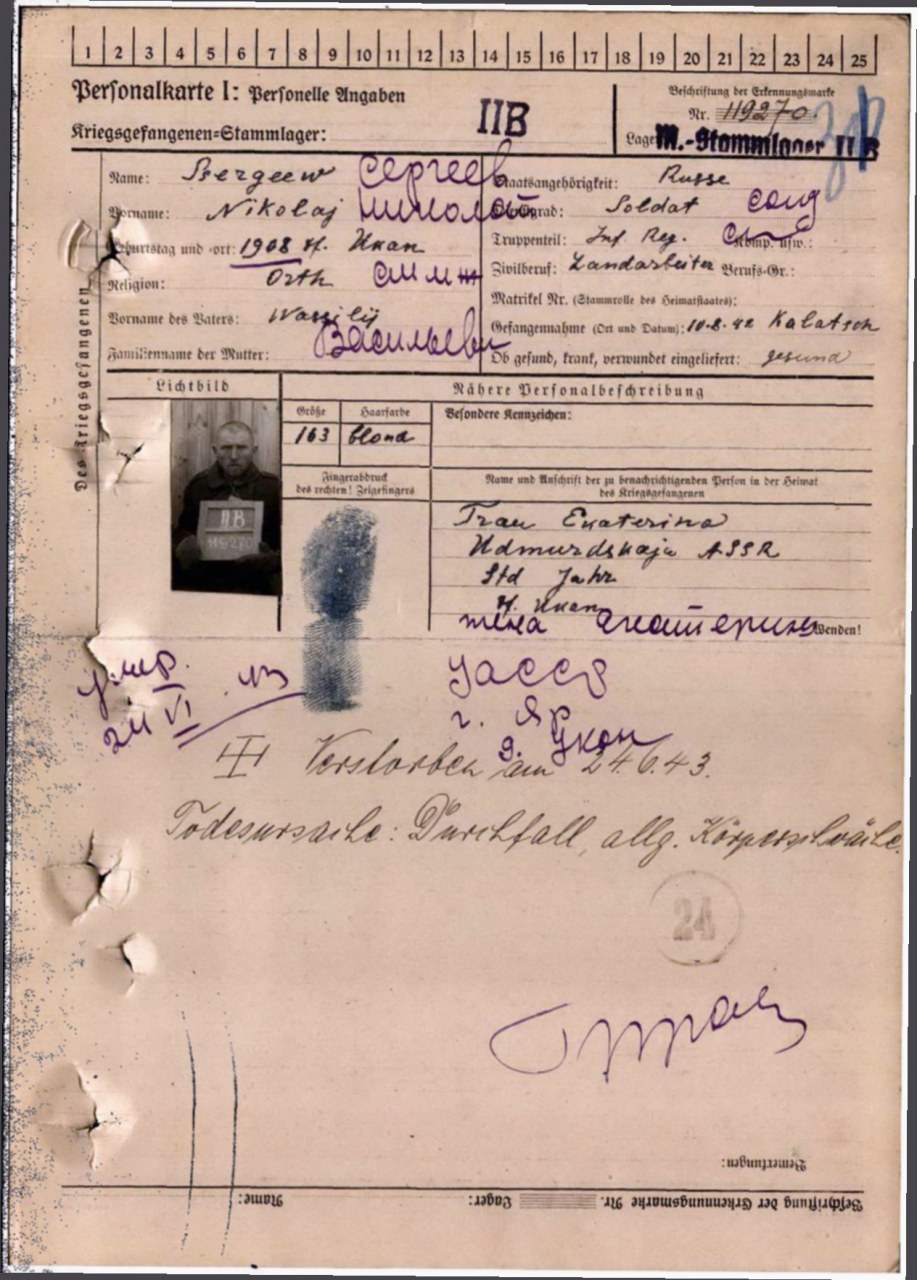 1 2 3 4 5 6 7 8 9 10 11 12 13 14 15 16 17 18 19 20 21 22 23 24 25
Personalkarte I: Personelle Angaben
Kriegsgefangenen-Stammlager: IIB
Beschriftung der Erkennungsmarke
Nr. 119270
Lager: M.-Stammlager II B
Des Kriegsgefangenen
Name: Sergeew Сергеев
Vorname: Nikolaj Николай
Geburtstag und -ort: 1908 Ukan
Religion: Orth
Vorname des Vaters: Wassilij
Васильеви
Familienname der Mutter:
Staatsangehörigkeit: Russe
Dienstgrad: Soldat солд
Truppenteil: Inf. Reg. Komp. usw.:
Zivilberuf: Landarbeiter Berufs-Gr.:
Matrikel Nr. (Stammrolle des Heimatstaates):
Gefangennahme (Ort und Datum): 10.8.42 Kalatsch
Ob gesund, krank, verwundet eingeliefert: gesund
Lichtbild
Nähere Personalbeschreibung
Größe Haarfarbe Besondere Kennzeichen:
163 blond
II B
119270
Fingerabdruck
des rechten! Zeigefingers
Name und Anschrift der zu benachrichtigenden Person in der Heimat
des Kriegsgefangenen
Frau Ekaterina
Udmurdskaja ASSR
Std Jahr
Ukan
жена Екатерина
Wenden!
УАССР
г. Яр
д. Укан
умер.
24 VI 43
Verstorben am 24.6.43.
Todesursache: Durchfall, allg. Körperschwäche.
24
Bemerkungen:
Beschriftung der Erkennungsmarke Nr. Lager: Name: